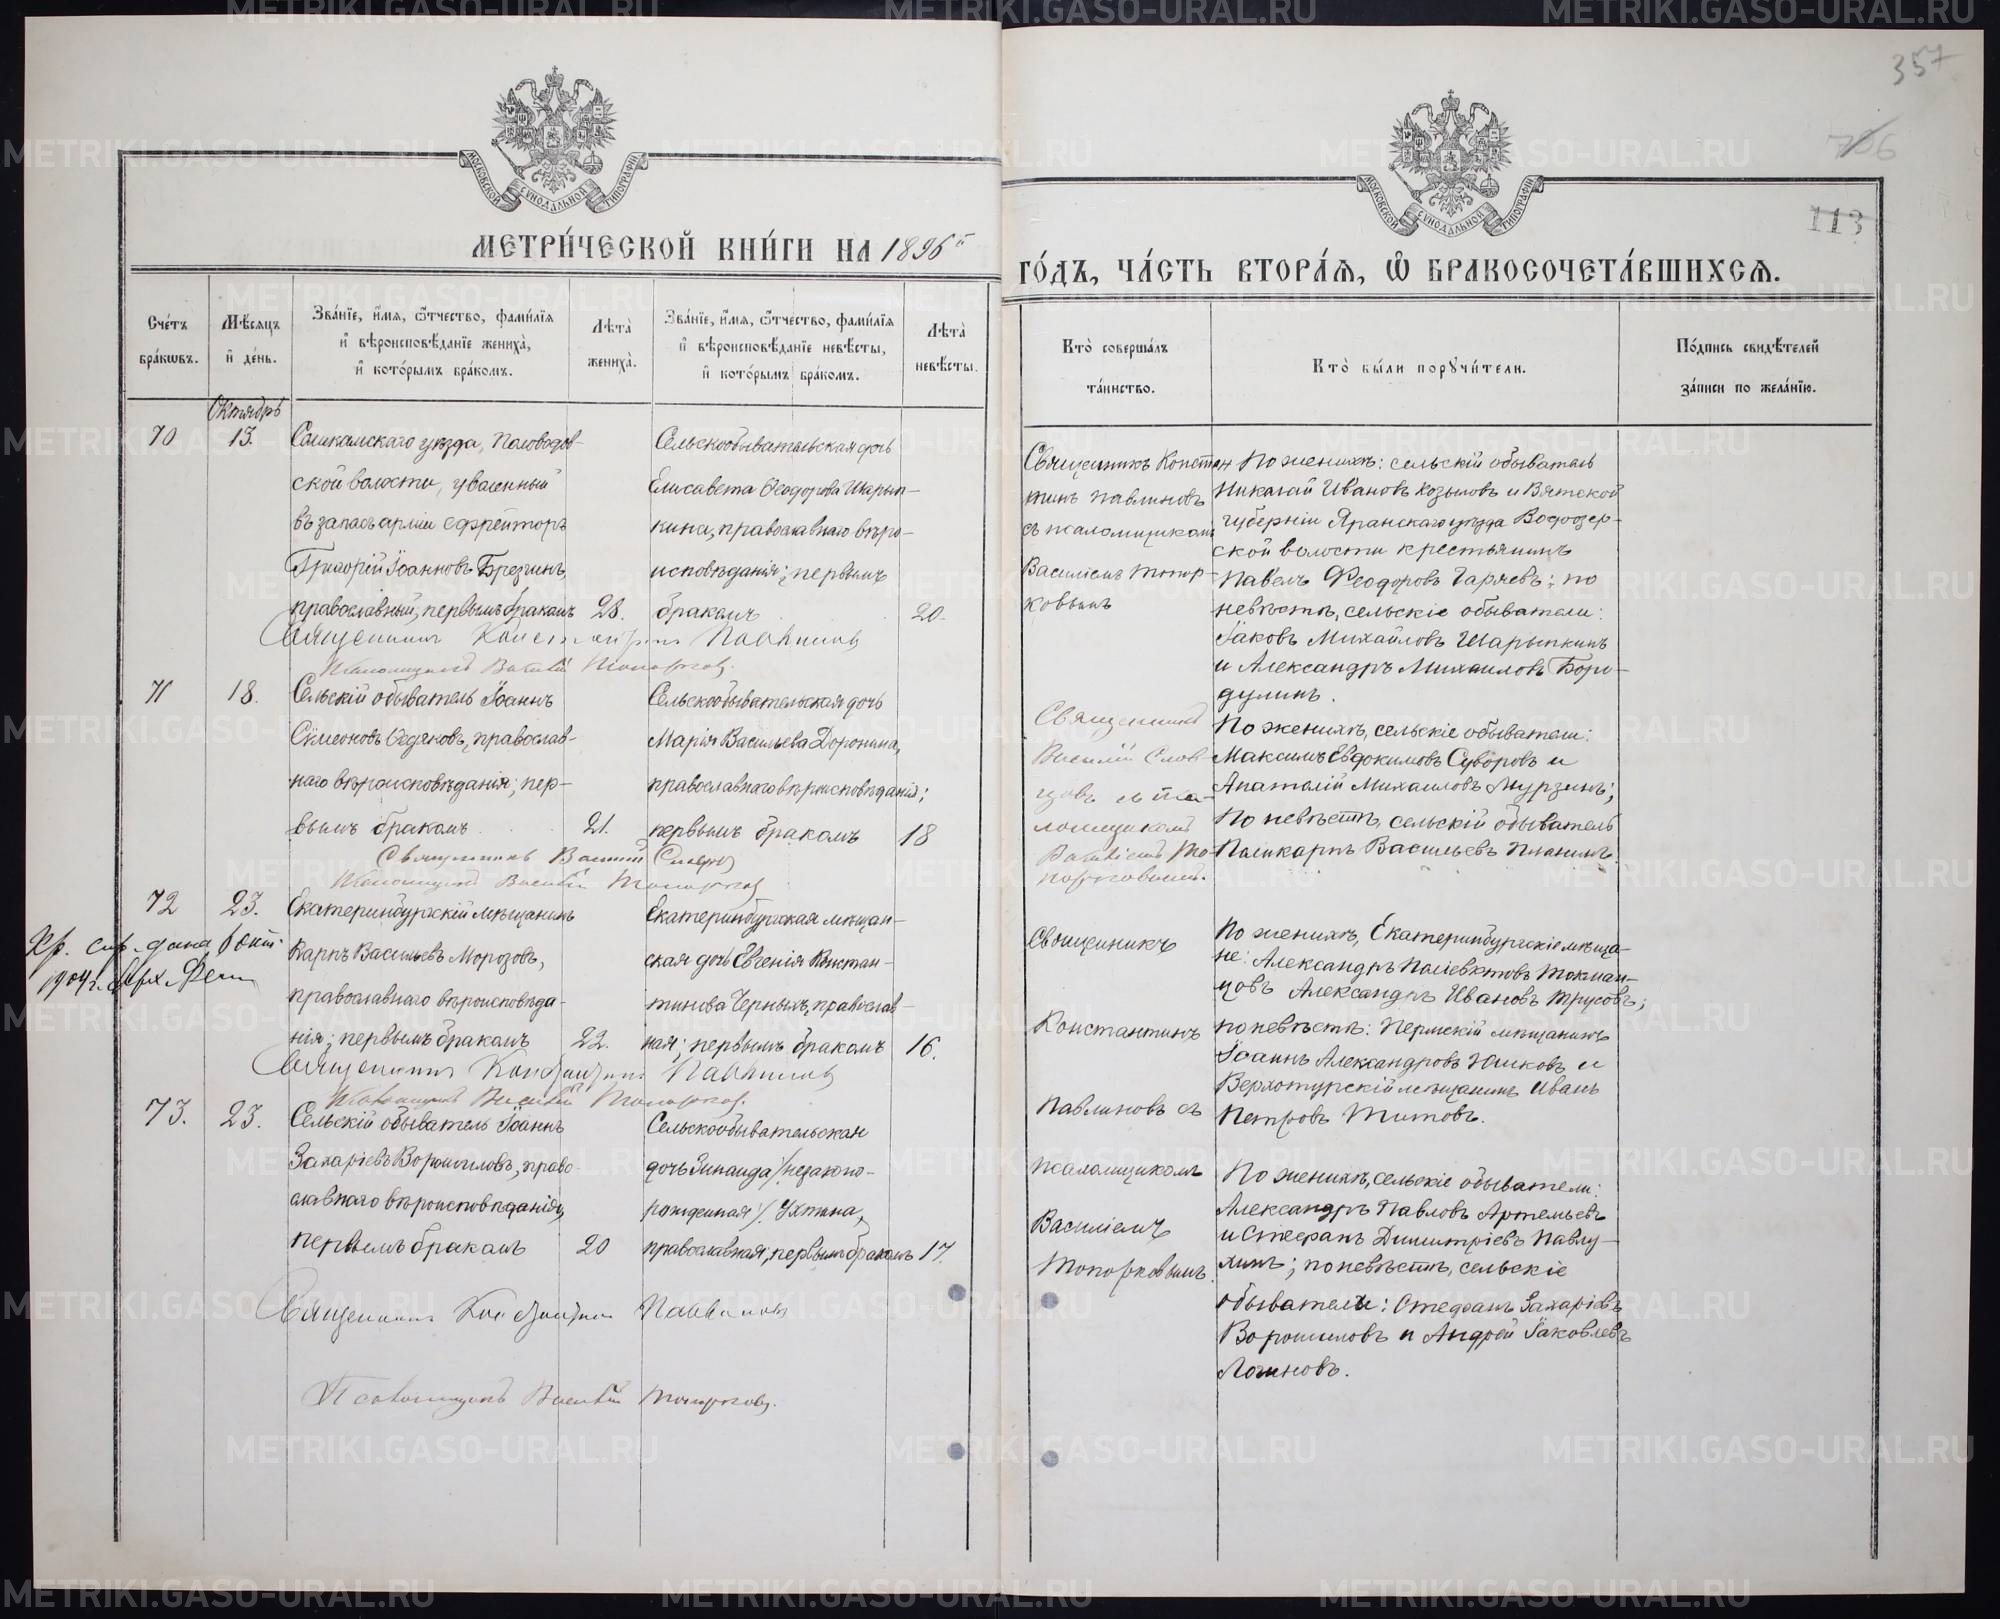 357
706
113
МОСКОВСКОЙ СУНОДАЛЬНОЙ ТИПОГРАФІИ
МОСКОВСКОЙ СУНОДАЛЬНОЙ ТИПОГРАФІИ
МЕТРИ́ЧЕСКОЙ КНИ́ГИ НА 1896й
ГО́ДЪ, ЧА́СТЬ ВТОРА́Ѧ, Ѽ БРАКОСОЧЕТА́ВШИХСѦ.
Сче́тъ бра́кѡвъ.
Мѣ́сѧцъ и҆ де́нь.
Зва́нїе, и҆́мѧ, ѻ҆́тчество, фамилїѧ
и҆ вѣроисповѣ́данїе жениха̀,
и҆ кото́рымъ бра́комъ.
Лѣта̀ жениха̀.
Зва́нїе, и҆́мѧ, ѻ҆́тчество, фамилїѧ
и҆ вѣроисповѣ́данїе невѣ́сты,
и҆ кото́рымъ бра́комъ.
Лѣта̀ невѣ́сты.
Кто̀ соверша́лъ та́инство.
Кто̀ бы́ли порꙋчи́тели.
По́дпись свидѣ́телей за́писи по жела́нїю.
Октябрь
70
13.
Соликамскаго уѣзда, Половодов-
ской волости, уволенный
въ запасъ арміи ефрейторъ
Григорій Іоанновъ Брезгинъ,
православный, первымъ бракомъ
28.
Сельскообывательская дочь
Елисавета Ѳеодорова Шарып-
кина, православнаго вѣро-
исповѣданія; первымъ
бракомъ
20.
Священникъ Констан
тинъ Павлиновъ
съ псаломщикомъ
Василіемъ Топор-
ковымъ
По женихѣ: сельскій обыватель
Николай Ивановъ Козыловъ и Вятской
губерніи Яранскаго уѣзда Водозер-
ской волости крестьянинъ
Павелъ Ѳеодоровъ Гаряевъ; по
невѣстѣ, сельскіе обыватели:
Іаковъ Михайловъ Шарыпкинъ
и Александръ Михайловъ Боро-
дулинъ.
Священникъ Константинъ Павлиновъ
Псаломщикъ Василій Топорковъ.
71
18.
Сельскій обыватель Іоаннъ
Сѵмеоновъ Ѳедяковъ, православ-
наго вѣроисповѣданія; пер-
вымъ бракомъ
21.
Сельскообывательская дочь
Марія Васильева Доронина,
православнаго вѣроисповѣданія;
первымъ бракомъ
18
Священникъ
Василій Слов-
цовъ съ пса-
ломщикомъ
Василіемъ То-
порковымъ.
По женихѣ, сельскіе обыватели:
Максимъ Евдокимовъ Суворовъ и
Анатолій Михаиловъ Мурзинъ;
По невѣстѣ, сельскій обыватель
Поликарпъ Васильевъ
Священникъ Василій Словцовъ
Псаломщикъ Василій Топорковъ
72
23.
Екатеринбургскій мѣщанинъ
Карпъ Васильевъ Морозовъ,
православнаго вѣроисповѣда-
нія; первымъ бракомъ
22.
Екатеринбургская мѣщан-
ская дочь Евгенія Констан-
тинова Черныхъ, православ-
ная; первымъ бракомъ
16.
1904 г.
Священникъ
Константинъ
Павлиновъ съ
псаломщикомъ
Василіемъ
Топорковымъ
По женихѣ, Екатеринбургскіе мѣща-
не: Александръ Поліевктовъ Токман-
цовъ Александръ Ивановъ Трусовъ;
по невѣстѣ: Пермскій мѣщанинъ
Іоаннъ Александровъ и
Верхотурскій мѣщанинъ Иванъ
Петровъ Титовъ.
Священникъ Константинъ Павлиновъ
Псаломщикъ Василій Топорковъ.
73.
23.
Сельскій обыватель Іоаннъ
Захаріевъ Ворошиловъ, право-
славнаго вѣроисповѣданія,
первымъ бракомъ
20
Сельскообывательская
дочь Зинаида /незаконо-
рожденная/ Ухтина,
православная; первымъ бракомъ
17.
По женихѣ, сельскіе обыватели:
Александръ Павловъ Артемьевъ
и Стефанъ Димитріевъ Павлу-
хинъ; по невѣстѣ, сельскіе
обыватели: Стефанъ Захаріевъ
Ворошиловъ и Андрей Іаковлевъ
Логиновъ.
Священникъ Константинъ Павлиновъ
Псаломщикъ Василій Топорковъ.
METRIKI.GASO-URAL.RU